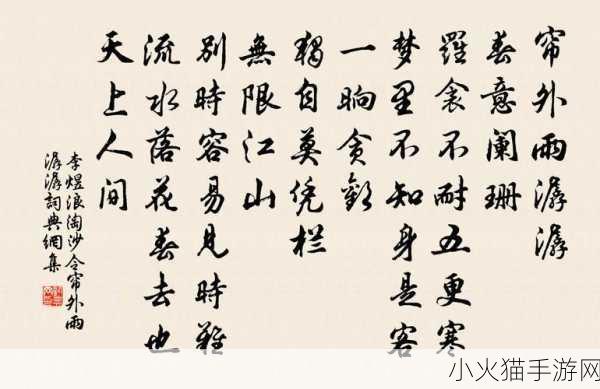 帘外雨潺潺
春意阑珊
羅衾不耐五更寒
梦里不知身是客
一晌貪歡
獨自莫凭栏
無限江山
别時容易見時難
流水落花春去也
天上人间
李煜浪淘沙令帘外雨
潺潺詞典網集
小火猫手游网